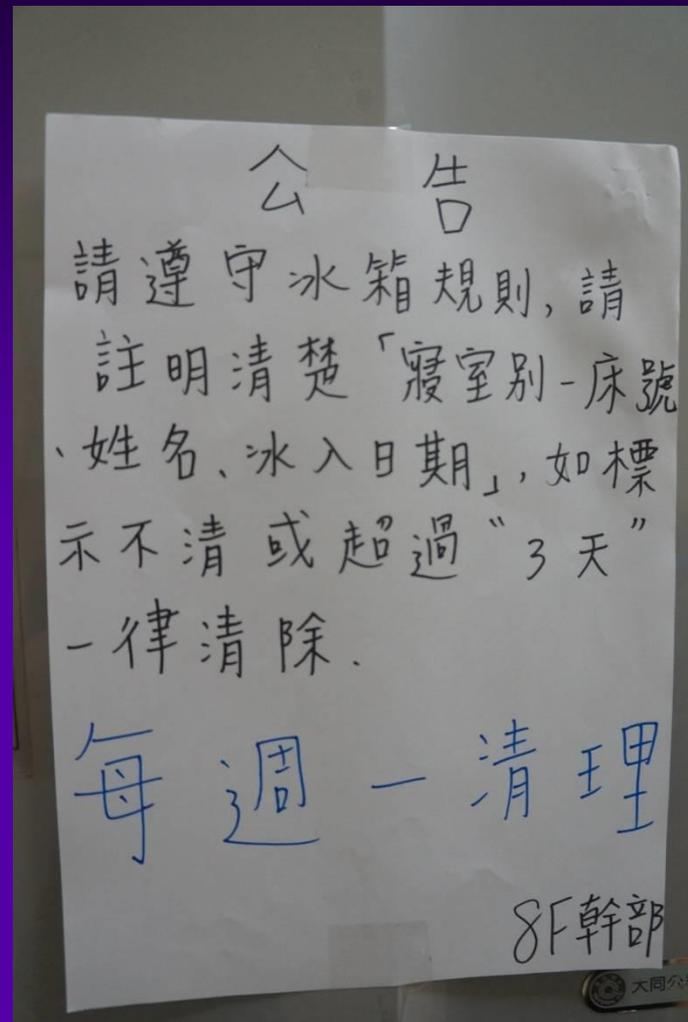 公告
請遵守冰箱規則, 請
註明清楚「寢室別-床號
、姓名、冰入日期」, 如標
示不清或超過“3天”
一律清除.
每週一清理
8F幹部
大同公